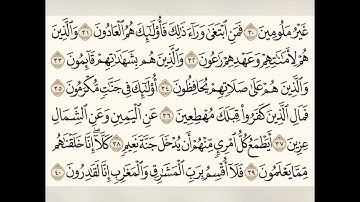 غَيْرُ مَلُومِينَ ٣٠ فَمَنِ ٱبْتَغَىٰ وَرَآءَ ذَٰلِكَ فَأُو۟لَـٰٓئِكَ هُمُ ٱلْعَادُونَ ٣١ وَٱلَّذِينَ
هُمْ لِأَمَـٰنَـٰتِهِمْ وَعَهْدِهِمْ رَٰعُونَ ٣٢ وَٱلَّذِينَ هُم بِشَهَـٰدَٰتِهِمْ قَآئِمُونَ ٣٣
وَٱلَّذِينَ هُمْ عَلَىٰ صَلَاتِهِمْ يُحَافِظُونَ ٣٤ أُو۟لَـٰٓئِكَ فِى جَنَّـٰتٍ مُّكْرَمُونَ ٣٥
فَمَالِ ٱلَّذِينَ كَفَرُوا۟ قِبَلَكَ مُهْطِعِينَ ٣٦ عَنِ ٱلْيَمِينِ وَعَنِ ٱلشِّمَالِ
عِزِينَ ٣٧ أَيَطْمَعُ كُلُّ ٱمْرِئٍ مِّنْهُمْ أَن يُدْخَلَ جَنَّةَ نَعِيمٍ ٣٨ كَلَّآ ۖ إِنَّا خَلَقْنَـٰهُم
مِّمَّا يَعْلَمُونَ ٣٩ فَلَآ أُقْسِمُ بِرَبِّ ٱلْمَشَـٰرِقِ وَٱلْمَغَـٰرِبِ إِنَّا لَقَـٰدِرُونَ ٤٠